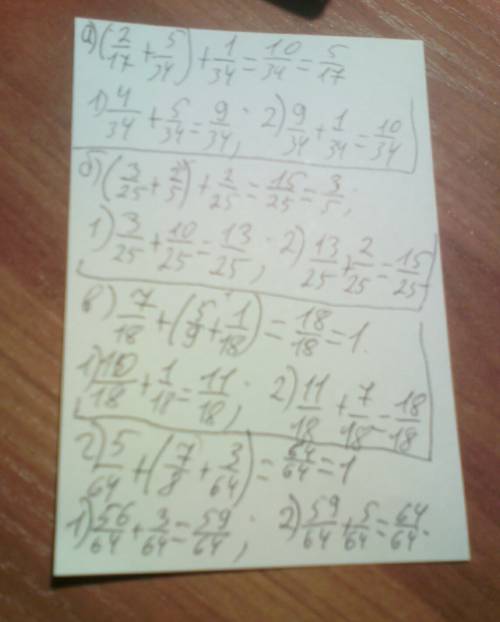 а) (2/17 + 5/34) + 1/34 = 10/34 = 5/17
1) 4/34 + 5/34 = 9/34; 2) 9/34 + 1/34 = 10/34
б) (3/25 + 2/5) + 2/25 = 15/25 = 3/5;
1) 3/25 + 10/25 = 13/25; 2) 13/25 + 2/25 = 15/25.
в) 7/18 + (5/9 + 1/18) = 18/18 = 1.
1) 10/18 + 1/18 = 11/18; 2) 11/18 + 7/18 = 18/18
г) 5/64 + (7/8 + 3/64) = 64/64 = 1
1) 56/64 + 3/64 = 59/64; 2) 59/64 + 5/64 = 64/64.